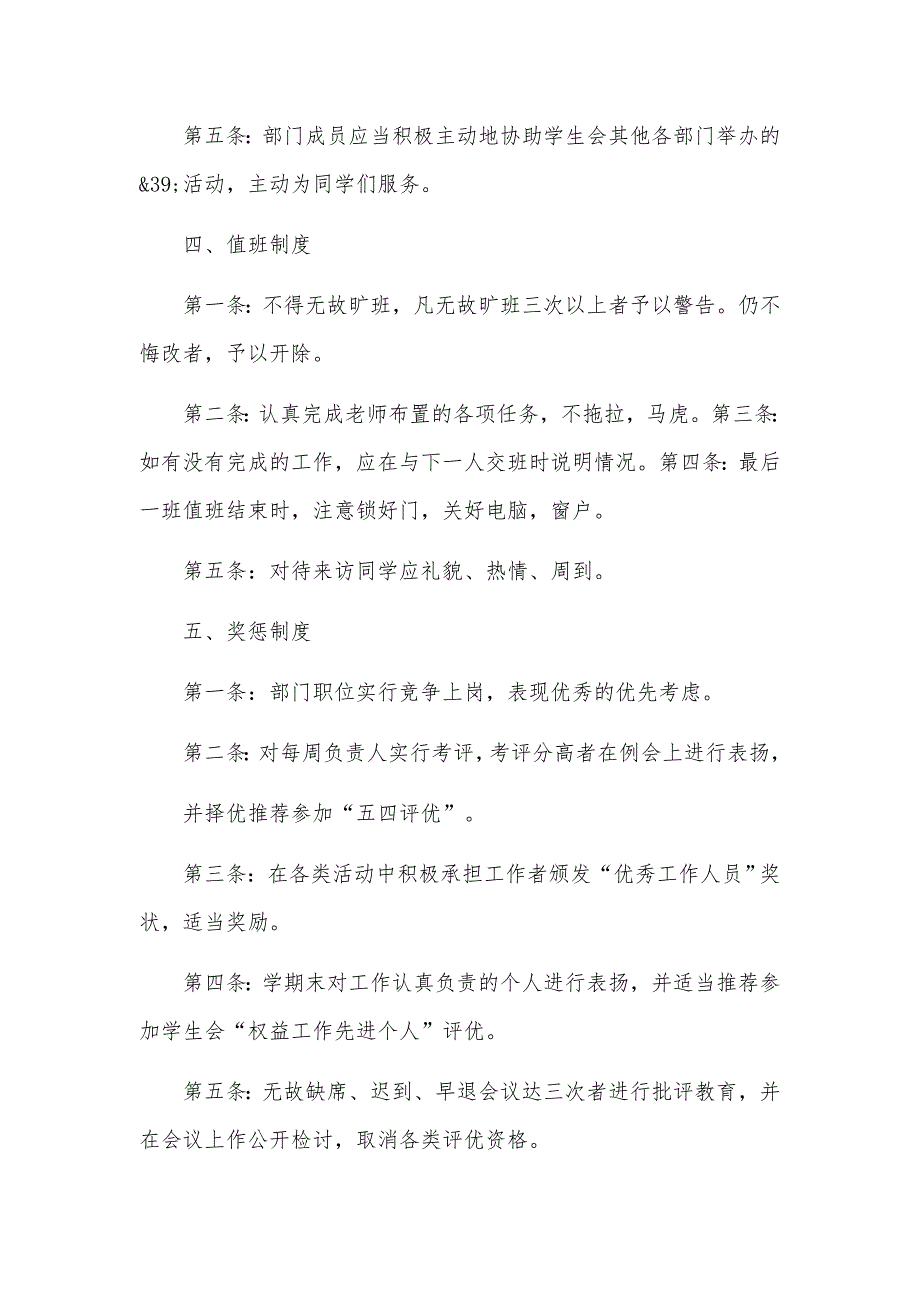 第五条：部门成员应当积极主动地协助学生会其他各部门举办的
&39;活动，主动为同学们服务。
四、值班制度
第一条：不得无故旷班，凡无故旷班三次以上者予以警告。仍不
悔改者，予以开除。
第二条：认真完成老师布置的各项任务，不拖拉，马虎。第三条：
如有没有完成的工作，应在与下一人交班时说明情况。第四条：最后
一班值班结束时，注意锁好门，关好电脑，窗户。
第五条：对待来访同学应礼貌、热情、周到。
五、奖惩制度
第一条：部门职位实行竞争上岗，表现优秀的优先考虑。
第二条：对每周负责人实行考评，考评分高者在例会上进行表扬，
并择优推荐参加“五四评优”。
第三条：在各类活动中积极承担工作者颁发“优秀工作人员”奖
状，适当奖励。
第四条：学期末对工作认真负责的个人进行表扬，并适当推荐参
加学生会“权益工作先进个人”评优。
第五条：无故缺席、迟到、早退会议达三次者进行批评教育，并
在会议上作公开检讨，取消各类评优资格。